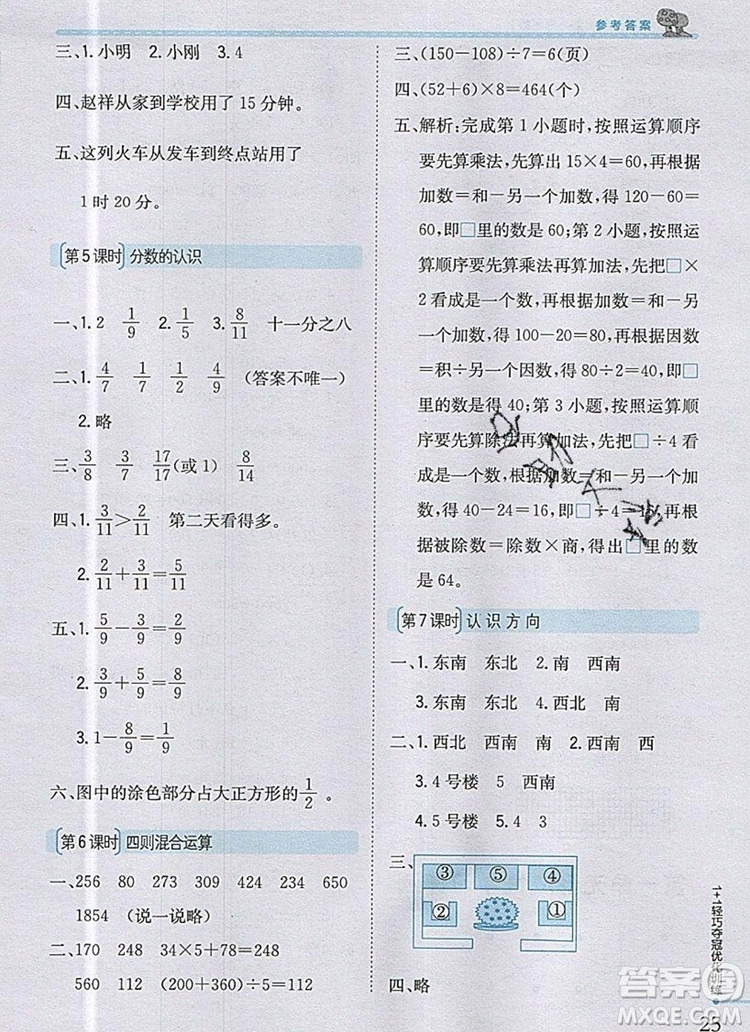 参考答案
三、1.小明 2.小刚 3.4
四、赵祥从家到学校用了 15 分钟。
五、这列火车从发车到终点站用了
1 时 20 分。
第5课时 分数的认识
一、1.2 1/9 2.1/5 3.8/11 十一分之八
二、1.4/7 1/7 1/2 4/9 (答案不唯一)
2.略
三、3/8 3/7 17/17(或 1) 8/14
四、1.3/11>2/11 第二天看得多。
2.2/11+3/11=5/11
五、1.5/9-4/9=1/9
2.3/9+5/9=8/9
3.1-8/9=1/9
六、图中的涂色部分占大正方形的1/2。
第6课时 四则混合运算
一、256 80 273 309 424 234 650
1854 (说一说略)
二、170 248 34×5+78=248
560 112 (200+360)÷5=112
三、(150-108)÷7=6(页)
四、(52+6)×8=464(个)
五、解析:完成第 1 小题时,按照运算顺序
要先算乘法,先算出 15×4=60,再根据
加数=和-另一个加数,得 120-60=
60,即□里的数是 60;第 2 小题,按照运
算顺序要先算乘法再算加法,先把□×
2 看成是一个数,再根据加数=和-另
一个加数,得 100-20=80,再根据因数
=积÷另一个因数,得 80÷2=40,即□
里的数是得 40;第 3 小题,按照运算顺
序要先算除法再算加法,先把□÷4 看
成是一个数,根据加数=和-另一个加
数,得 40-24=16,即□÷4=16,再
根据被除数=除数×商,得出□里的数
是 64。
第7课时 认识方向
一、1.东南 东北 2.南 西南
3.东南 东北 西北 西南
二、1.西北 西南 2.东北 东南
3.4 号楼 5 西南
4.1 号楼 5.4 3
三、
③ ⑤ ④
② ①
四、略
1+1轻巧夺冠优化训练
答案圈
MXQE.COM
25